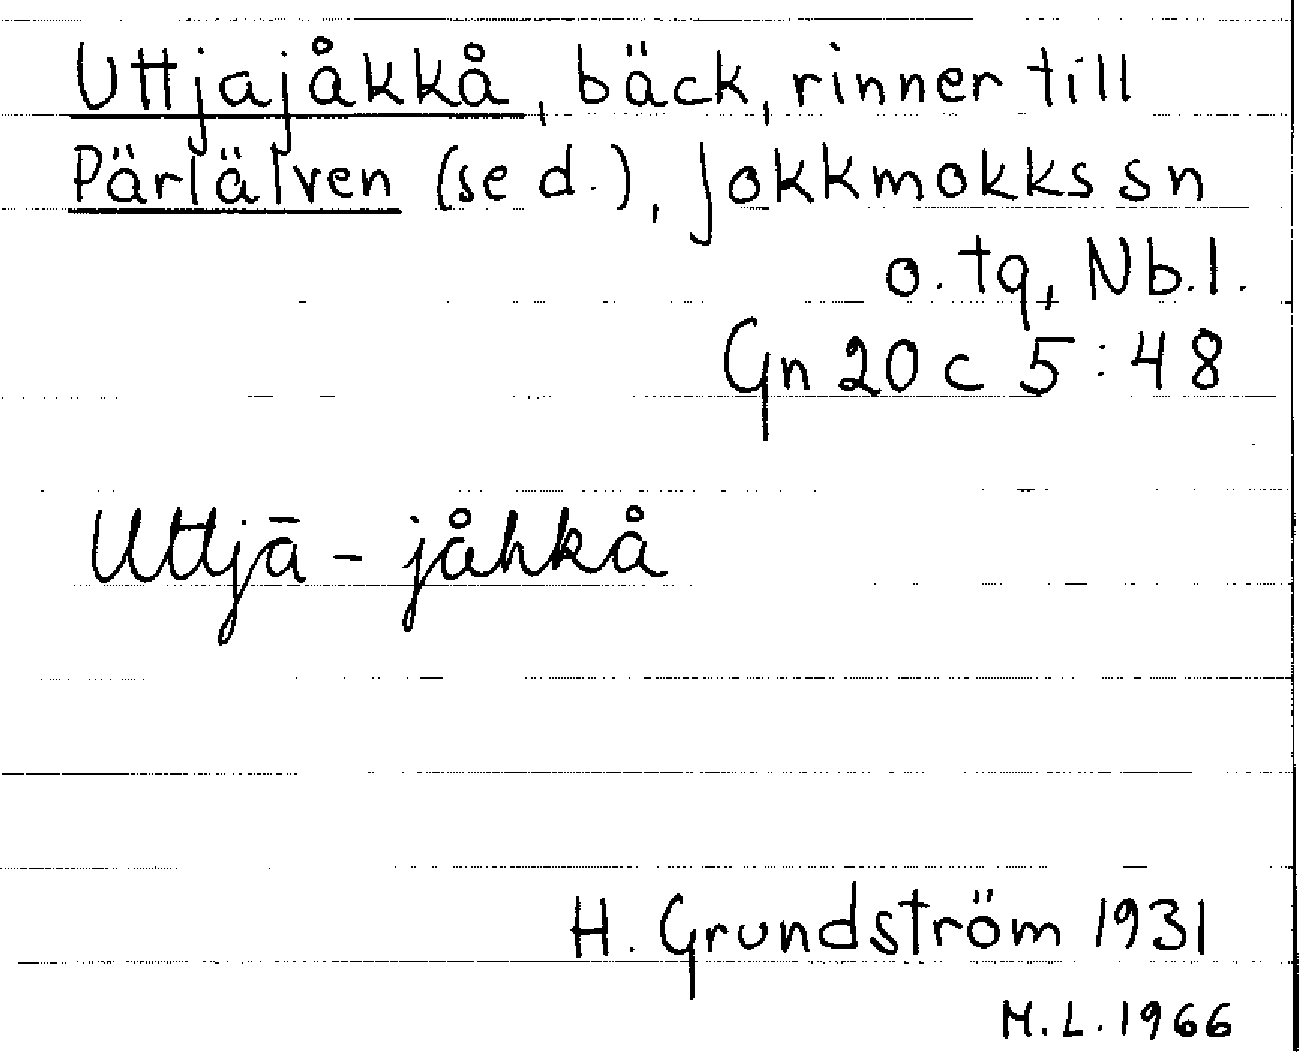 Uttjajåkkå, bäck, rinner till
Pärlälven (se d.), Jokkmokks sn
o. tg, Nb. l.
Gn 20 c 5:48
Uttjā - jåhkå
H. Grundström 1931
M.L. 1966